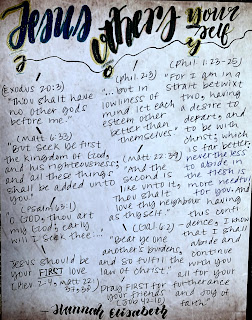 Jesus others yourself
(Exodus 20:3)
"Thou shalt have
no other gods
before me."
(Matt 6:33)
"But seek ye first
the kingdom of God,
and his righteousness;
and all these things
shall be added unto
you."
(Psalm 63:1)
"O GOD, thou art
my God; early
will I seek thee..."
Jesus should be
your FIRST love
(Rev 2:4, Matt 22:
37, 38)
(Phil 2:3)
"...but in
lowliness of
mind let each
esteem other
better than
themselves"
(Matt 22:39)
"And the
second is
like unto it,
Thou shalt
love thy neighbour
as thyself."
(Gal 6:2)
"Bear ye one
another's burdens,
and so fulfil the
law of Christ."
Pray FIRST for
your friends
(Job 42:10)
(Phil 1:23-25)
"For I am in a
strait betwixt
two, having
a desire to
depart, and
to be with
Christ; which
is far better:
nevertheless
to abide in
the flesh is
more needful
for you. And
having this confi
dence, I know
that I shall
abide and
continue
with you
all for your
furtherance
and joy of
faith."
Hannah Elisabeth